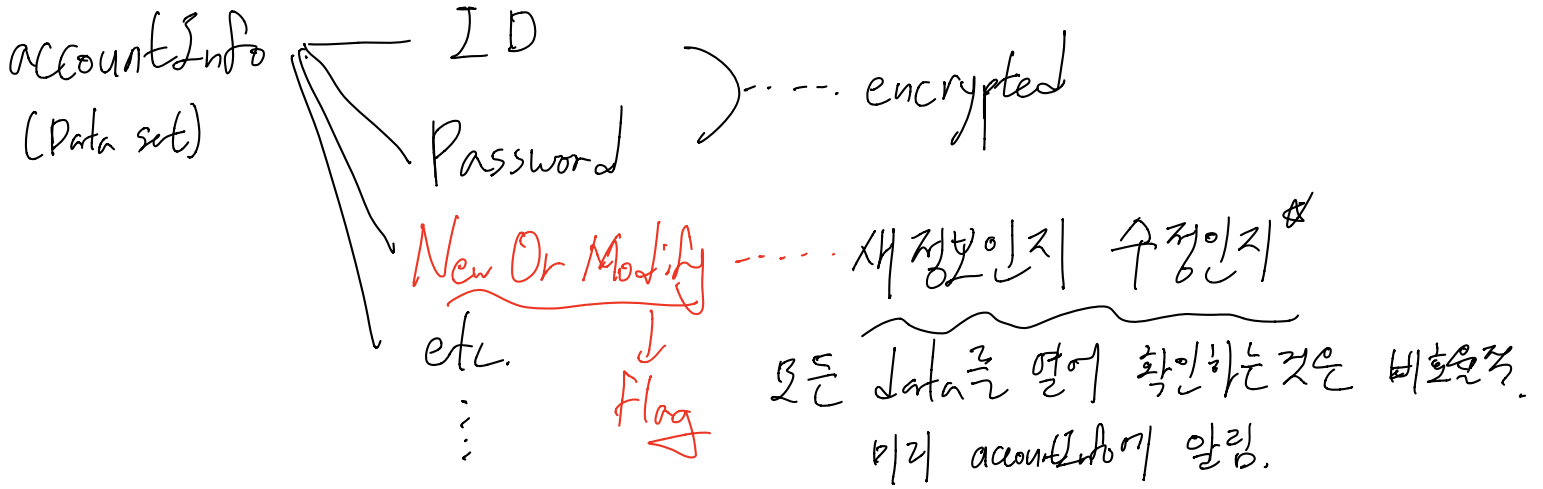 accountInfo
(Data set)
ID
Password
encrypted
New Or Modify
새 정보인지 수정인지
etc.
Flag
모든 data를 열어 확인하는것은 비효율적.
미리 accountInfo에 알림.